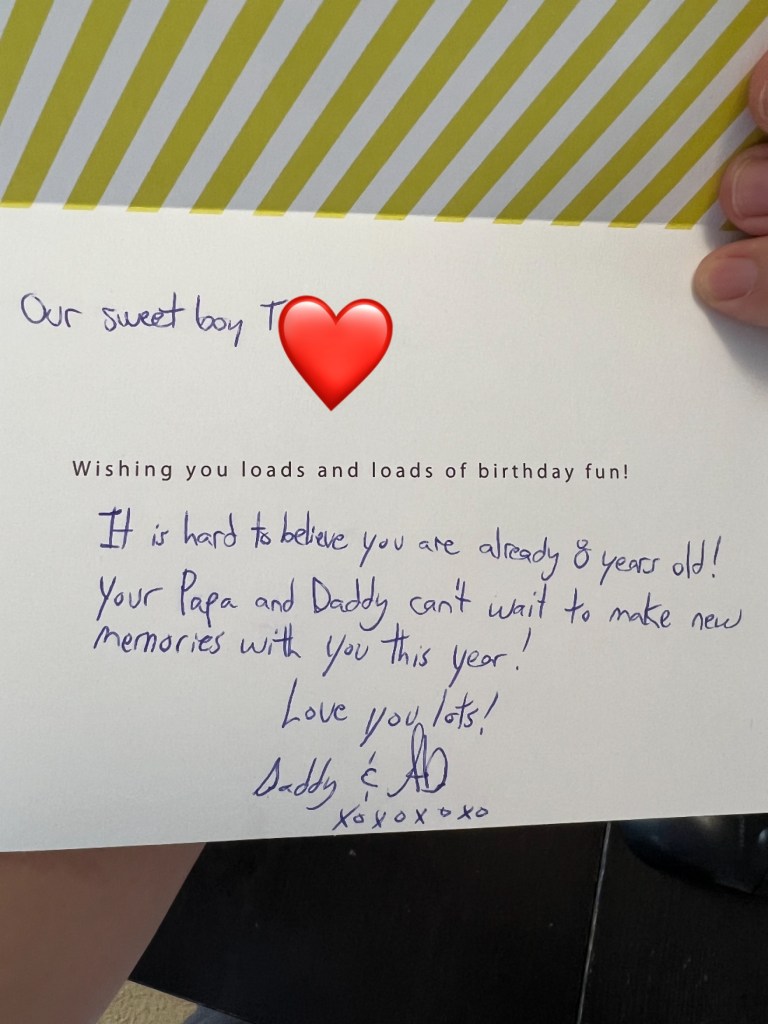 Our sweet boy T
Wishing you loads and loads of birthday fun!
It is hard to believe you are already 8 years old!
Your Papa and Daddy can't wait to make new
memories with you this year!
Love you lots!
Daddy &
xoxoxoxo